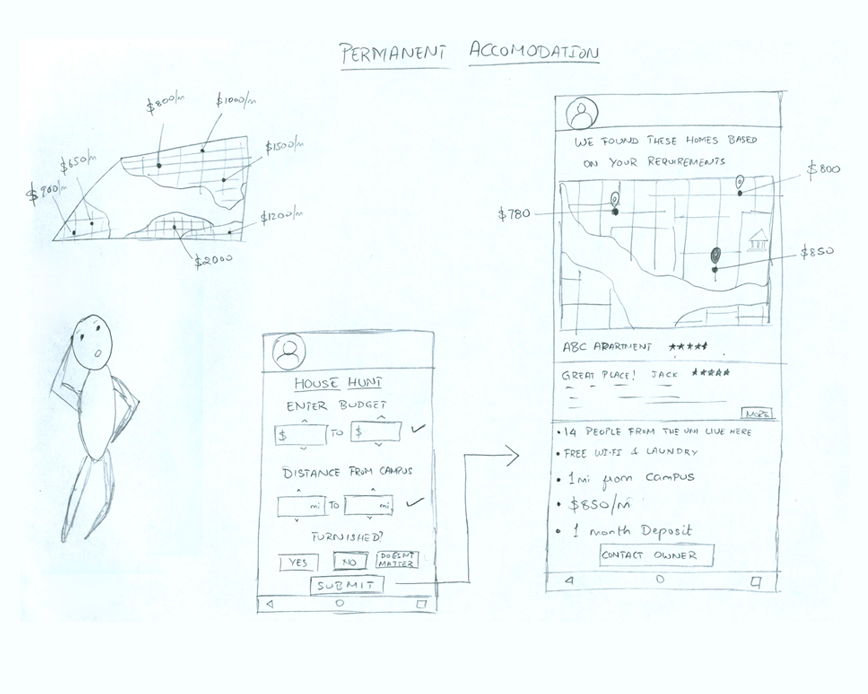 PERMANENT ACCOMODATION
$800/m
$1000/m
$650/m
$1500/m
$900/m
$1200/m
$2000
HOUSE HUNT
ENTER BUDGET
$ TO $
DISTANCE FROM CAMPUS
mi TO mi
FURNISHED?
YES NO DOESNT MATTER
SUBMIT
WE FOUND THESE HOMES BASED
ON YOUR REQUIREMENTS
$800
$780
$850
ABC APARTMENT ★★★★★
GREAT PLACE! JACK ★★★★★
MORE
• 14 PEOPLE FROM THE UNI LIVE HERE
• FREE WI-FI & LAUNDRY
• 1mi from CAMPUS
• $850/m
• 1 month Deposit
CONTACT OWNER